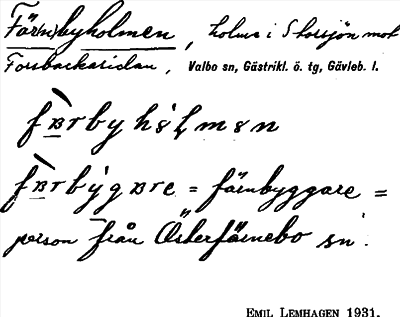 Fär(n)byholmen, holme i Storsjön mot
Forsbackasidan, Valbo sn, Gästrikl. ö. tg, Gävleb. l.
fàrbyhólmən
fàrbýgare = färnbyggare =
person från Österfärnebo sn.
EMIL LEMHAGEN 1931.